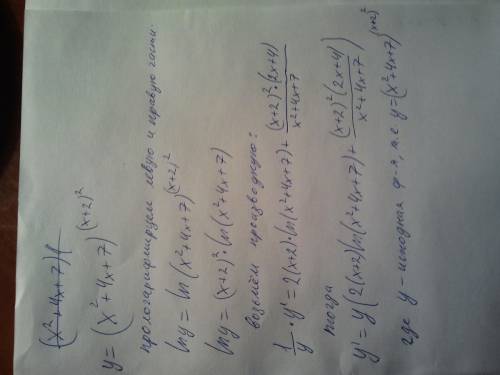 (x²+4x+7)
y = (x²+4x+7)^(x+2)²
прологарифмируем левую и правую части:
ln y = ln(x²+4x+7)^(x+2)²
ln y = (x+2)² · ln(x²+4x+7)
возьмём производную:
1/y · y' = 2(x+2)·ln(x²+4x+7) + (x+2)²·(2x+4)/x²+4x+7
тогда
y' = y(2(x+2)ln(x²+4x+7) + (x+2)²(2x+4)/x²+4x+7)
где y – исходная ф-я, т.е. y=(x²+4x+7)^(x+2)²